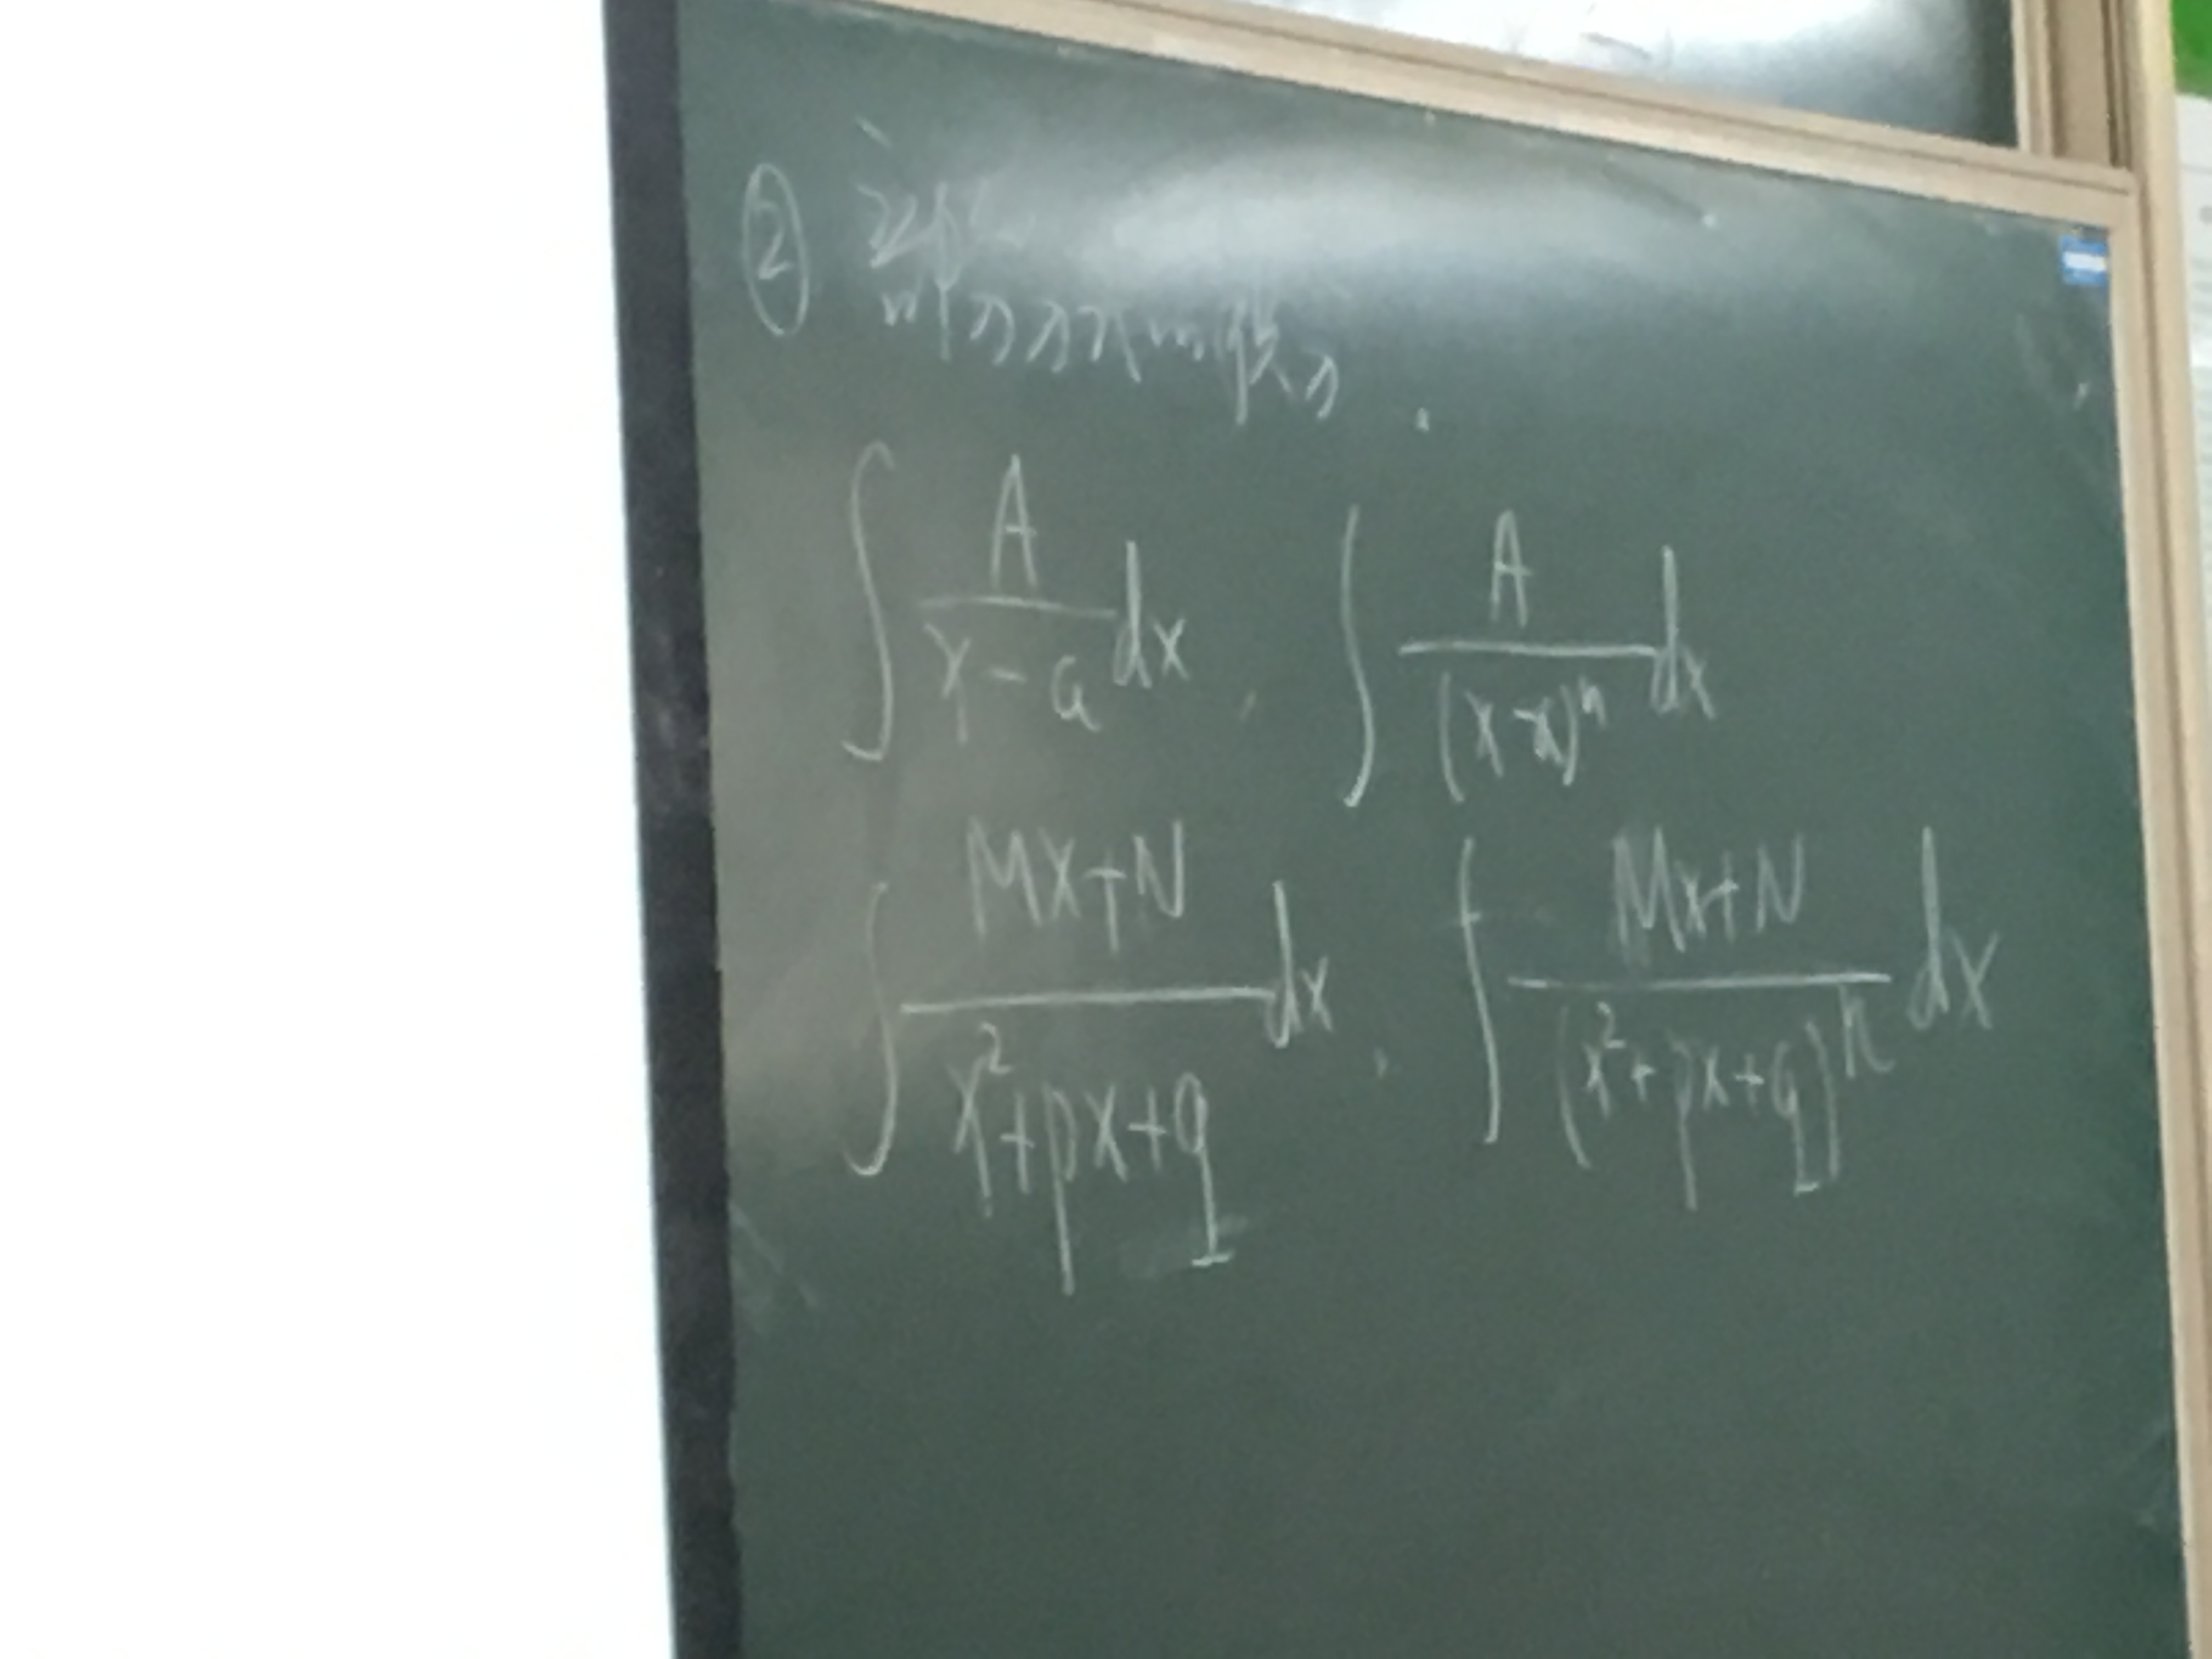 ②
∫ A/(x-a) dx , ∫ A/(x-x)ⁿ dx
∫ (Mx+N)/(x²+px+q) dx , ∫ (Mx+N)/(x²+px+q)ⁿ dx